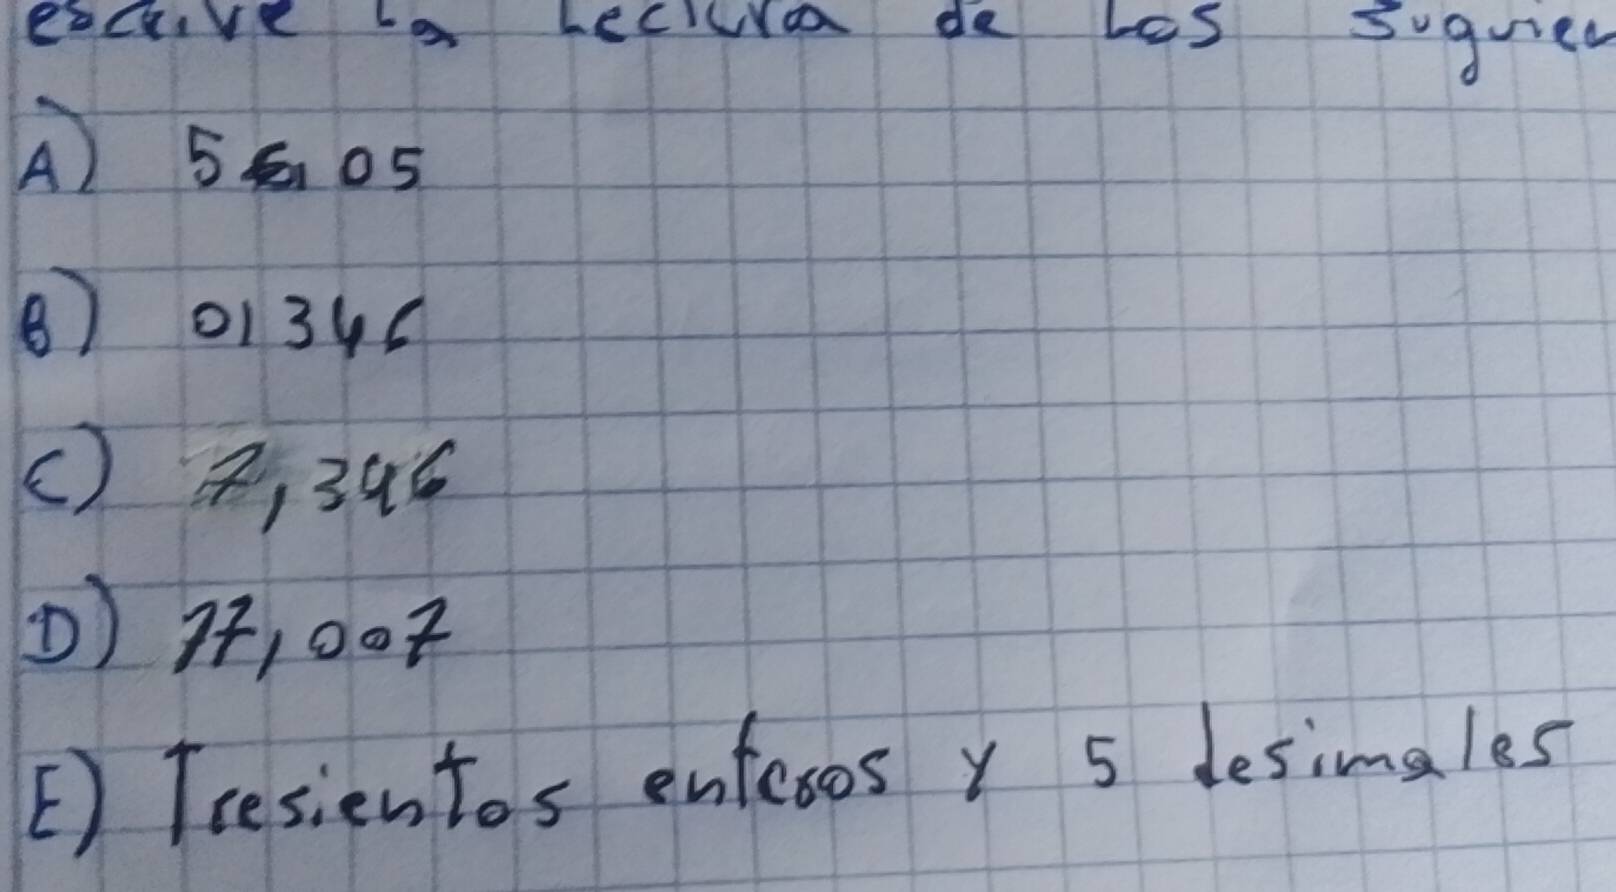 escrive la Lectura de Los suguien
A) 5 05
B) 01346
C) 7,346
D) 77,007
E) Tresientos enteros y 5 desimales